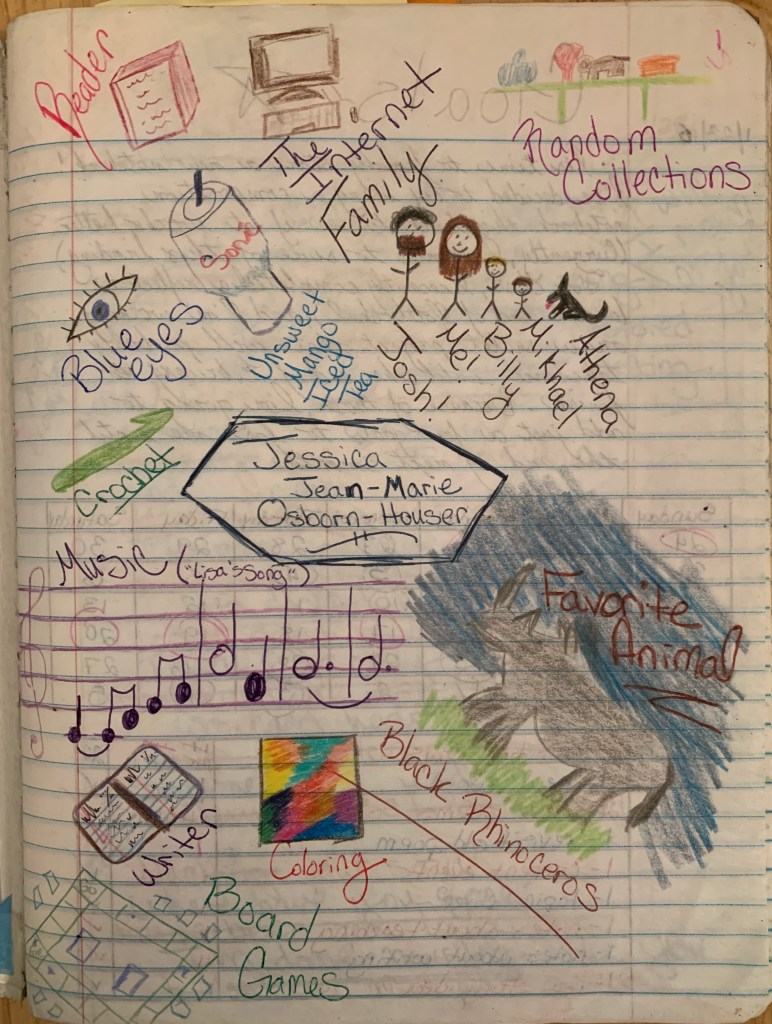 Reader
The
Internet
Random
Collections
Family
Sonic
Blue
eyes
Unsweet
Mango
Iced
Tea
Joshi
Mei
Billy
Mikhael
Athena
Crochet
Jessica
Jean-Marie
Osborn-Houser
Music ("Lisa's Song")
Favorite
Animal
Black Rhinoceros
Writer
Coloring
Board
Games